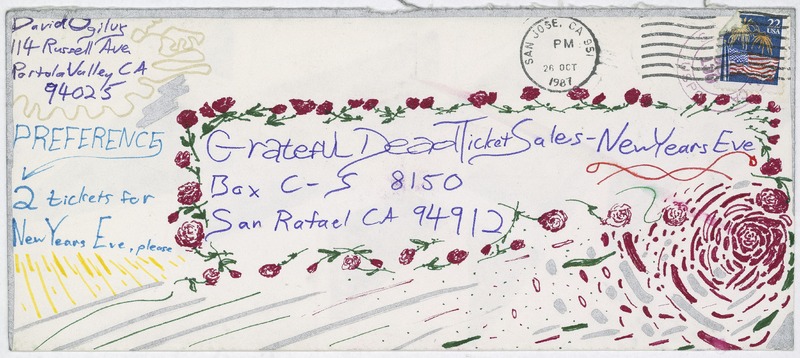 David Ogilvy
114 Russell Ave
Portola Valley CA
94025
PREFERENCE
2 tickets for
New Years Eve, please
Grateful Dead Ticket Sales - New Years Eve
Box C-S 8150
San Rafael CA 94912
SAN JOSE, CA 951
PM
26 OCT
1987
22
USA